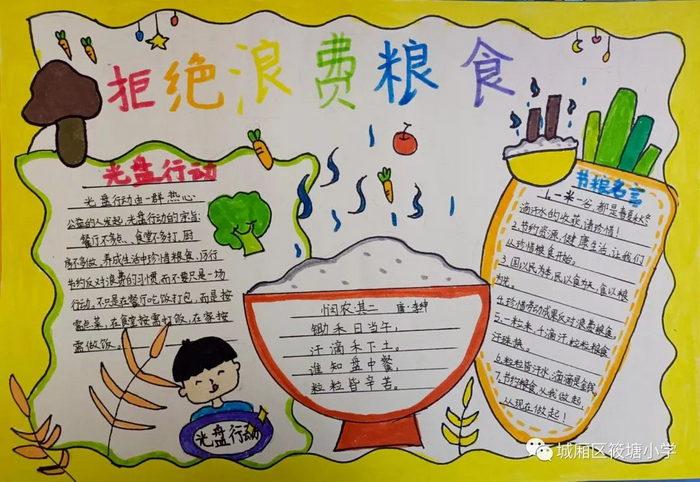 拒绝浪费粮食
光盘行动
光盘行动由一群热心
公益的人发起,光盘行动的宗旨:
餐厅不多点、食堂不多打、厨
房不多做。养成生活中珍惜粮食,厉行
节约反对浪费的习惯,而不要只是一场
行动。不只是在餐厅吃饭打包,而是按
需点菜,在食堂按需打饭,在家按
需做饭。
光盘行动
悯农其二 唐·李绅
锄禾日当午,
汗滴禾下土。
谁知盘中餐,
粒粒皆辛苦。
节粮名言
1.一米一谷,都是农
滴汗水的收获,请珍惜!
2.节约资源,健康生活,让我们
从珍惜粮食开始。
3.国以民为本,民以食为天,食以粮
为先。
4.珍惜劳动成果反对浪费粮食。
5.一粒米,千滴汗,粒粒粮食
汗珠换。
6.粒粒皆汗水,滴滴是金钱。
7.节约粮食,从我做起,
从现在做起!
城厢区筱塘小学